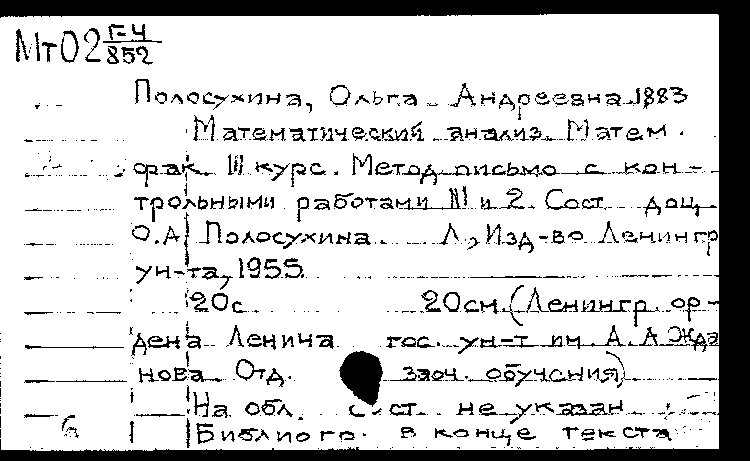 Мт02 Г-4/852
Полосухина, Ольга Андреевна 1883
Математический анализ. Матем.
фак. III курс. Метод. письмо с кон-
трольными работами III и 2. Сост. доц.
О.А. Полосухина. Л., Изд-во Ленингр
ун-та, 1955
20с 20см. (Ленингр. ор-
дена Ленина гос. ун-т им. А. А Жда
нова. Отд. заоч. обучения)
На обл. сост. не указан
Библиогр. в конце текста
6